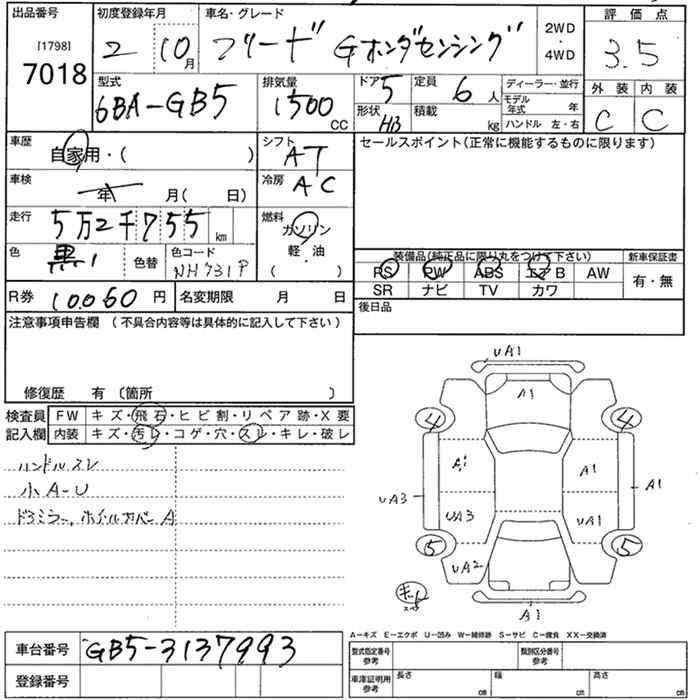 出品番号 初度登録年月 車名・グレード 2WD・4WD 評価点
[1798] 7018 2 10月 フリード Gホンダセンシング 3.5
型式 排気量 ドア 5 定員 6人 ディーラー・並行 外装 内装
6BA-GB5 1500 CC 形状 HB 積載 kg モデル年式 年 C C
ハンドル 左・右
車歴 自家用・( ) シフト AT セールスポイント(正常に機能するものに限ります)
車検 年 月( 日) 冷房 AC
走行 5万2千755 km 燃料 ガソリン
色 黒 色替 色コード NH731P 軽・油 ( )
装備品(純正品に限り丸をつけて下さい) 新車保証書
PS PW ABS エアB AW 有・無
SR ナビ TV カワ
R券 10060円 名変期限 月 日 後日品
注意事項申告欄 (不具合内容等は具体的に記入して下さい)
修復歴 有 〔箇所 〕
検査員 FW キズ・飛石・ヒビ割・リペア跡・X要
記入欄 内装 キズ・汚レ・コゲ・穴・スレ・キレ・破レ
ハンドルスレ
小A-U
ドアミラー、ホイールカバーA
UA1
A1
4 4
A1 A1
UA3 A1
UA3 UA1
5 5
UA2
A1
A-キズ E-エクボ U-凹み W-補修跡 S-サビ C-腐食 XX-交換済
車台番号 GB5-3137993 型式指定番号 参考 類別区分番号 参考
登録番号 車庫証明用 参考 長さ cm 幅 cm 高さ cm